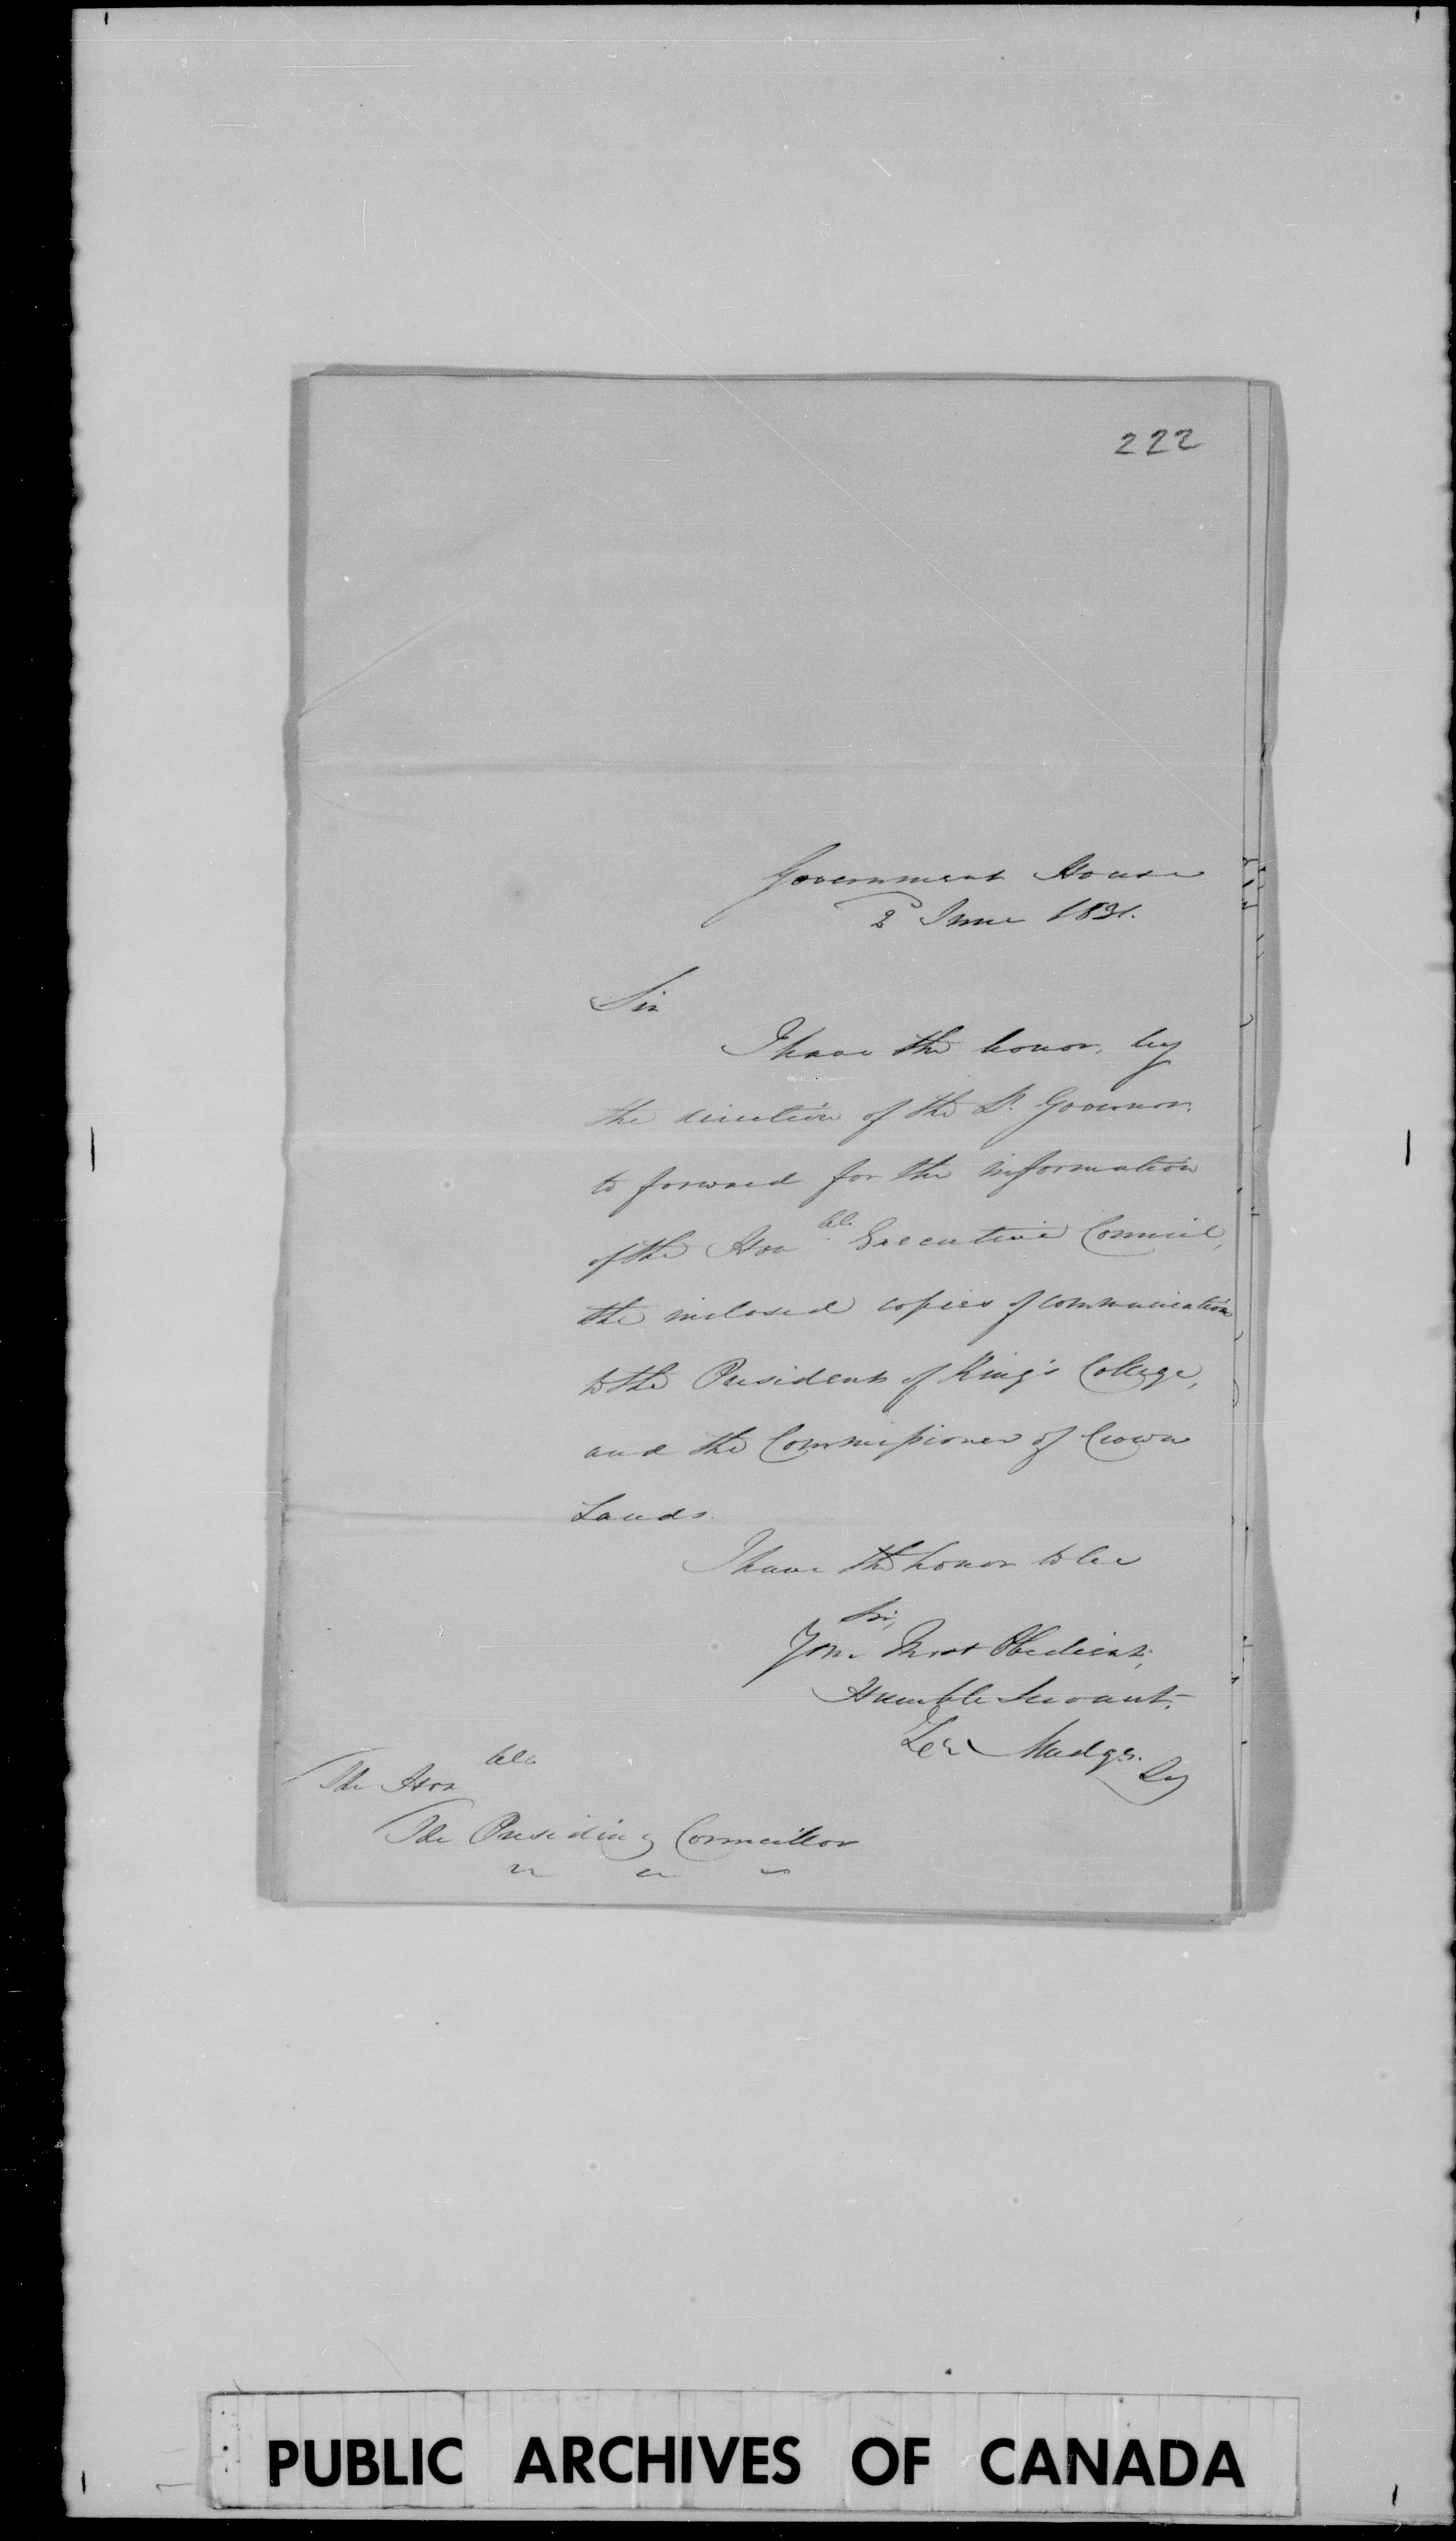 222
Government House
2d June 1831.
Sir
I have the honor, by
the direction of the Lt. Governor.
to forward for the information
of the Honble Executive Council,
the inclosed copies of communication
to the President of King's College,
and the Commissioner of Crown
Lands.
I have the honor to be
Sir,
Your Most Obedient,
Humble Servant.
Mudge.
The Honble
The Presiding Councillor
PUBLIC ARCHIVES OF CANADA